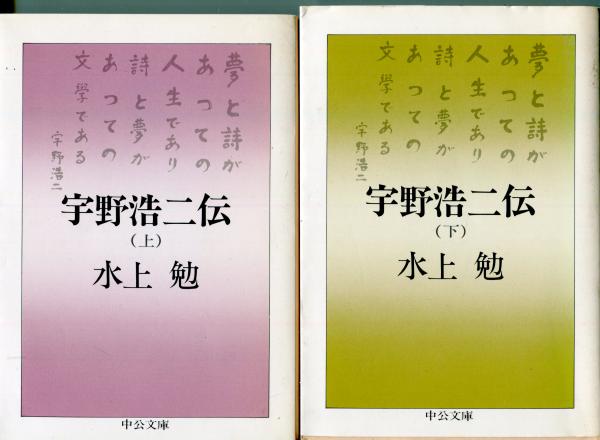 夢と詩が
あつての
人生であり
詩と夢が
あつての
文學である
宇野浩二
宇野浩二伝
(上)
水上 勉
中公文庫
夢と詩が
あつての
人生であり
詩と夢が
あつての
文學である
宇野浩二
宇野浩二伝
(下)
水上 勉
中公文庫